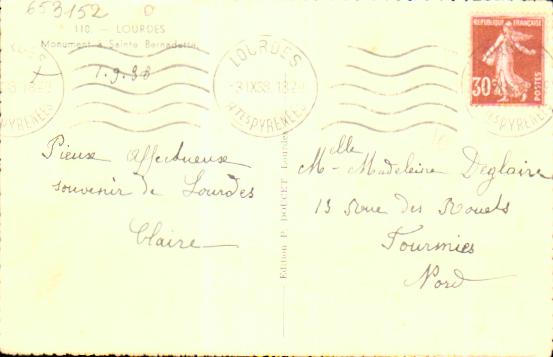 653152
110. — LOURDES
Monument à Sainte Bernadette
1.9.38
LOURDES
IX 38
HTES PYRENEES
REPUBLIQUE FRANÇAISE
30c
POSTES
Pieux affectueux
souvenir de Lourdes
Claire
Edition P. DOUCET, Lourdes
Mlle Madeleine Deglaire
13 Rue des Rouets
Fourmies
Nord